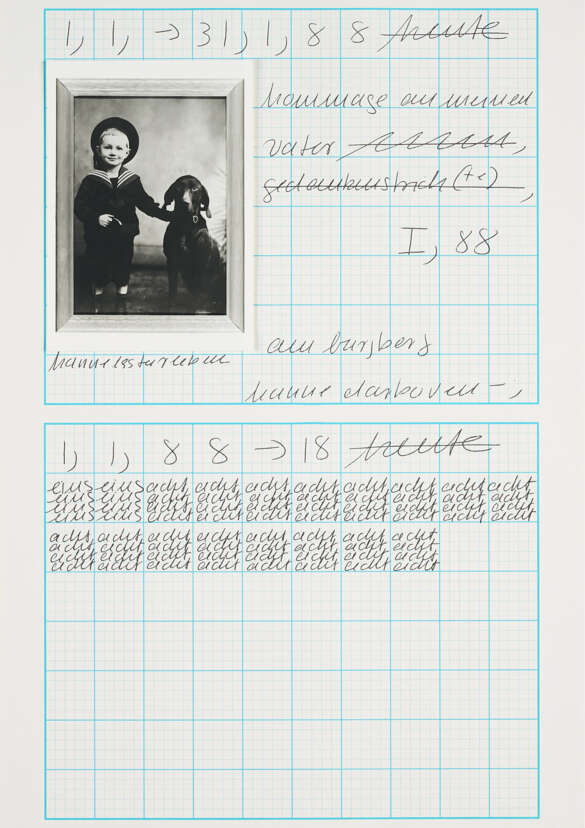 1, 1, → 31, 1, 8 8 heute
hommage an meinen
vater ,
gedankenstrich ,
I, 88
am burgberg
hanne darboven –,
1, 1, 8 8 → 18 heute
eins eins acht acht acht acht acht acht acht acht
eins eins acht acht acht acht acht acht acht acht
eins eins acht acht acht acht acht acht acht acht
eins eins acht acht acht acht acht acht acht acht
acht acht acht acht acht acht acht acht
acht acht acht acht acht acht acht acht
acht acht acht acht acht acht acht acht
acht acht acht acht acht acht acht acht